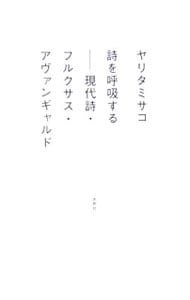 ヤリタミサコ
詩を呼吸する
――現代詩・
フルクサス・
アヴァンギャルド